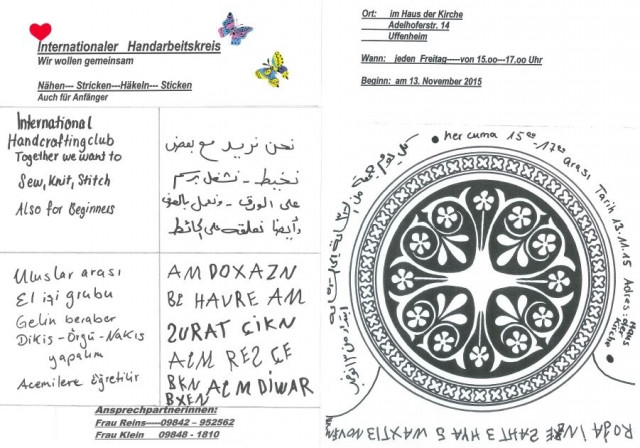 Internationaler Handarbeitskreis
Wir wollen gemeinsam
Nähen--- Stricken---Häkeln--- Sticken
Auch für Anfänger
International
Handcraftingclub
Together we want to
Sew, Knit, Stitch
Also for Beginners
نحن نريد مع بعض
نخيط - نشغل
على الورق -
وأيضا نعلقه على الحائط
Uluslar arası
El işi grubu
Gelin beraber
Dikiş - Örgü - Nakış
yapalım
Acemilere Öğretilir
AM DOXAZN
BE HAVRE AM
SURAT ÇIKN
ALM REZ GE
BKN ALM DIWAR
BXEN
Ansprechpartnerinen:
Frau Reins-----09842 – 952562
Frau Klein 09848 - 1810
Ort: im Haus der Kirche
Adelhoferstr. 14
Uffenheim
Wann: jeden Freitag-----von 15.oo---17.oo Uhr
Beginn: am 13. November 2015
her cuma 15⁰⁰ - 17⁰⁰ arası Tarih 13.11.15 Adres: Haus der Kirche